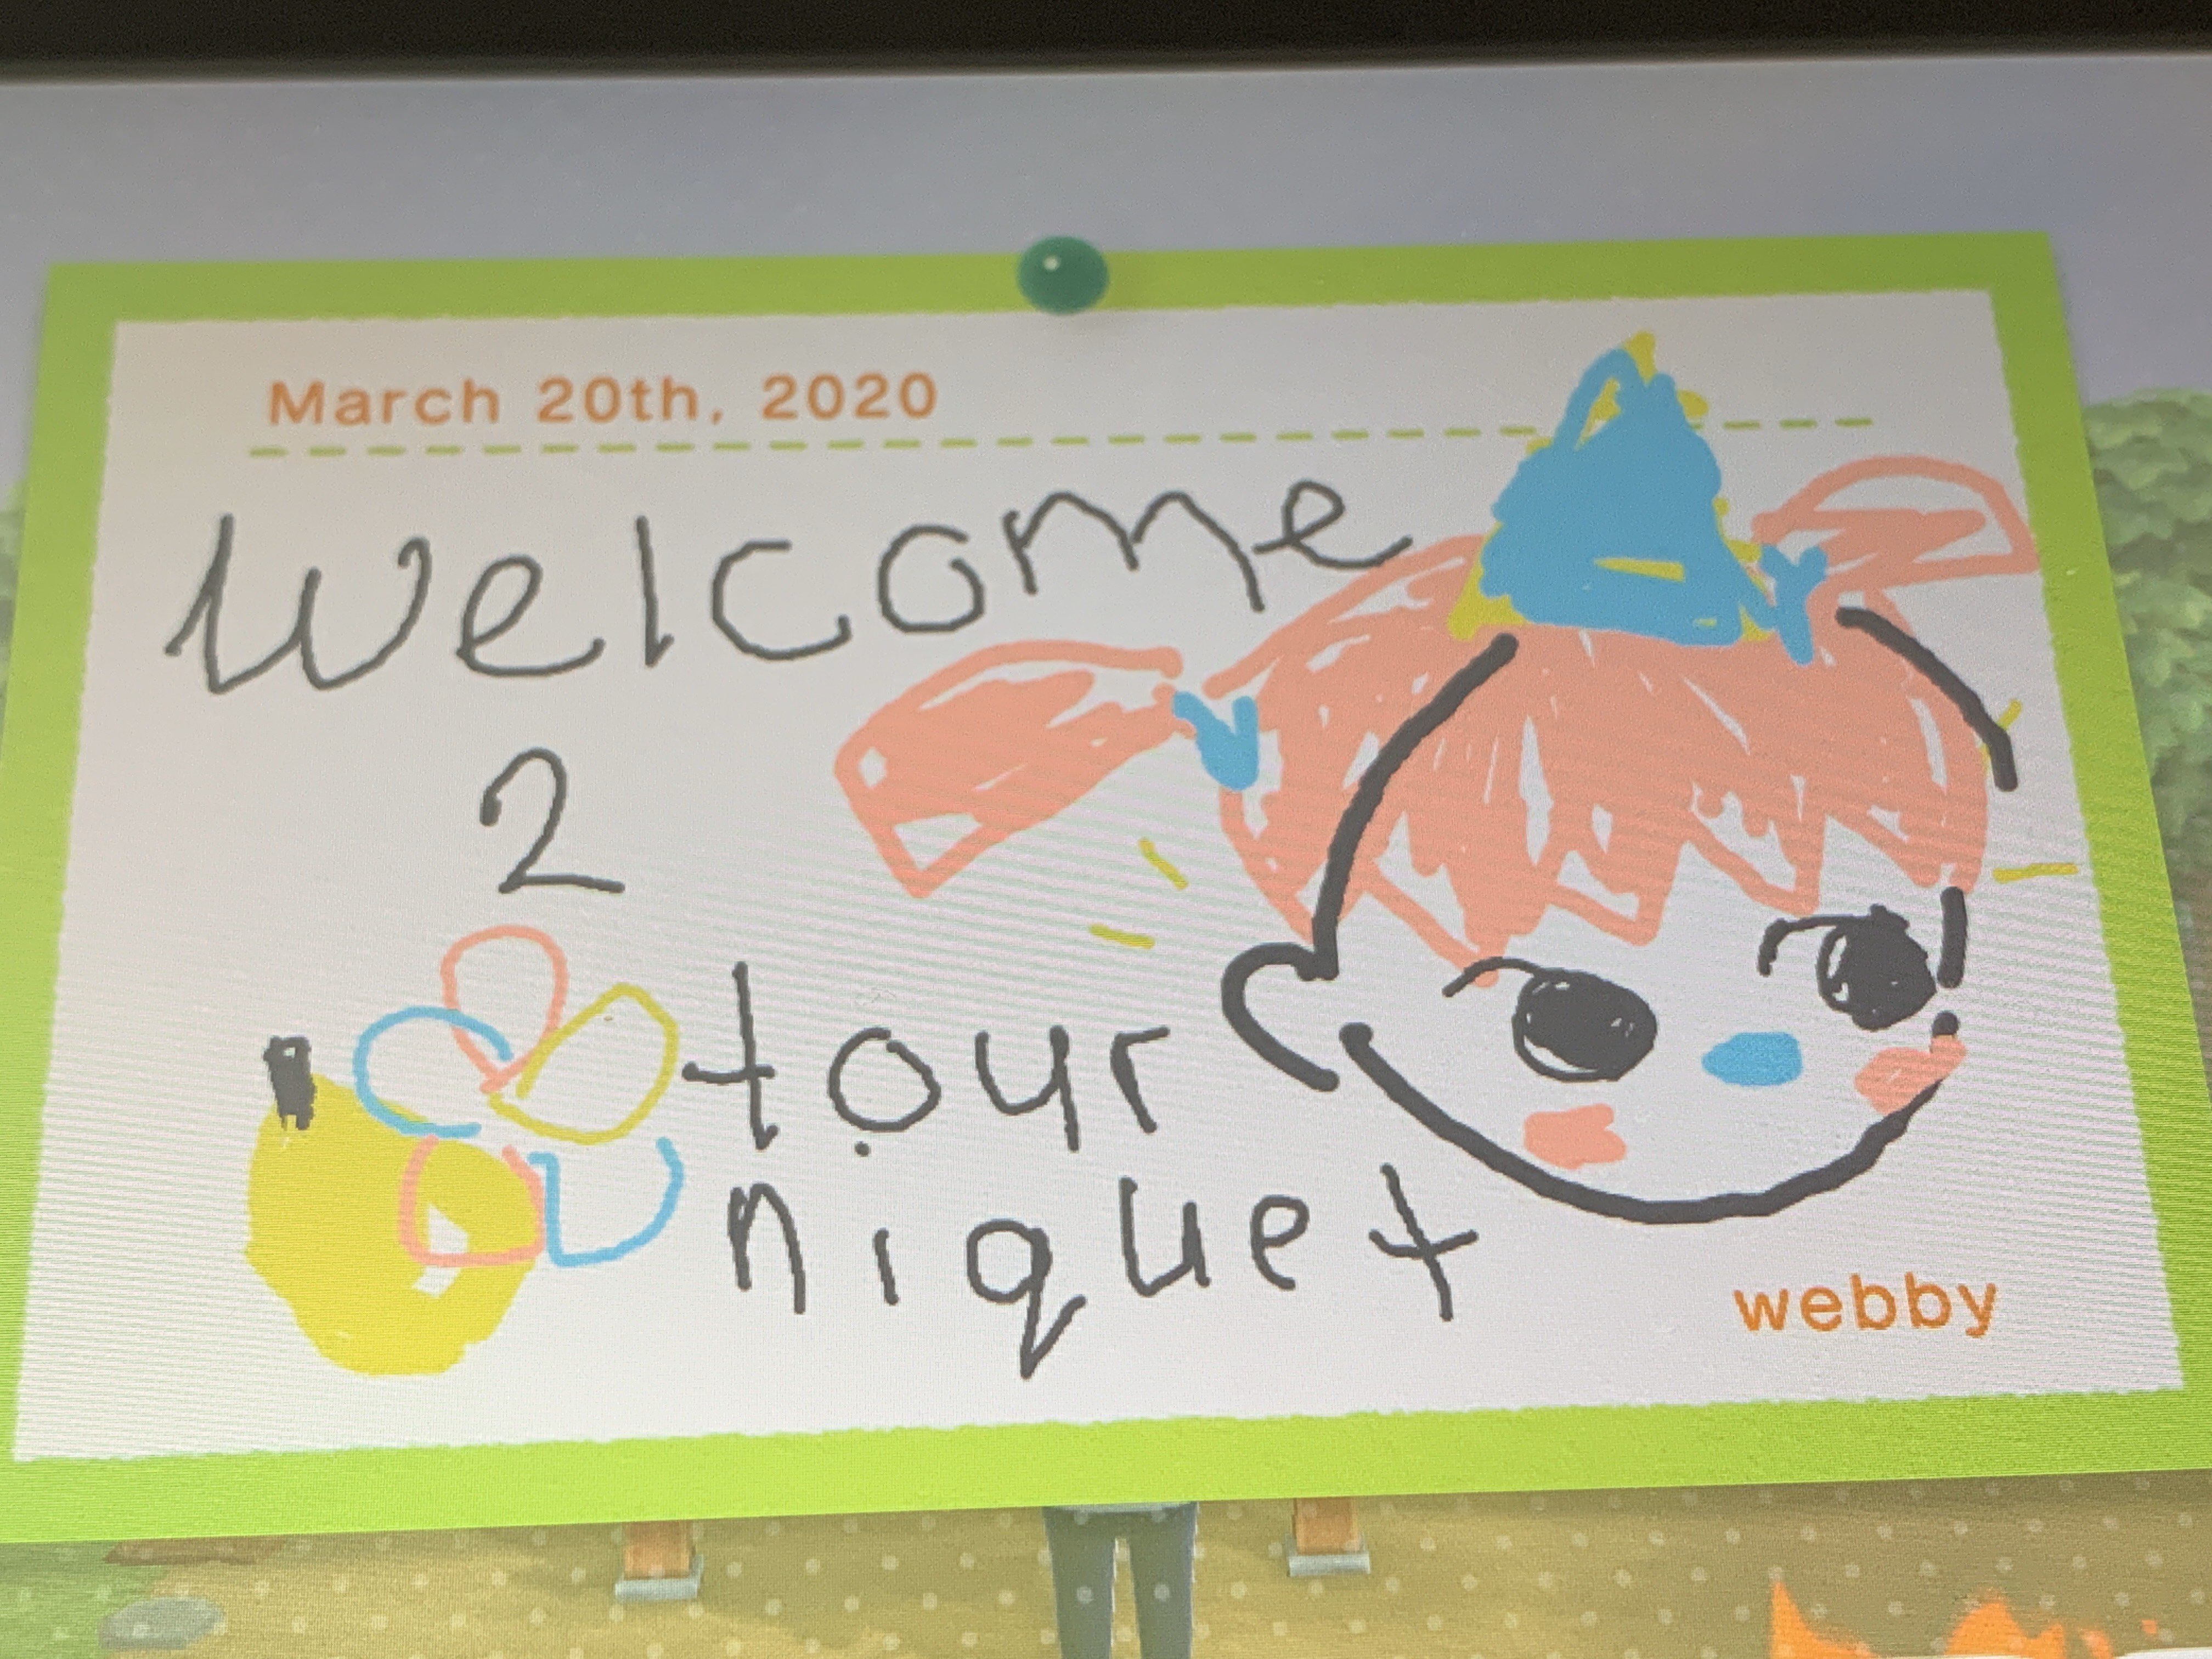 March 20th, 2020
Welcome
2
tour
niquet
webby